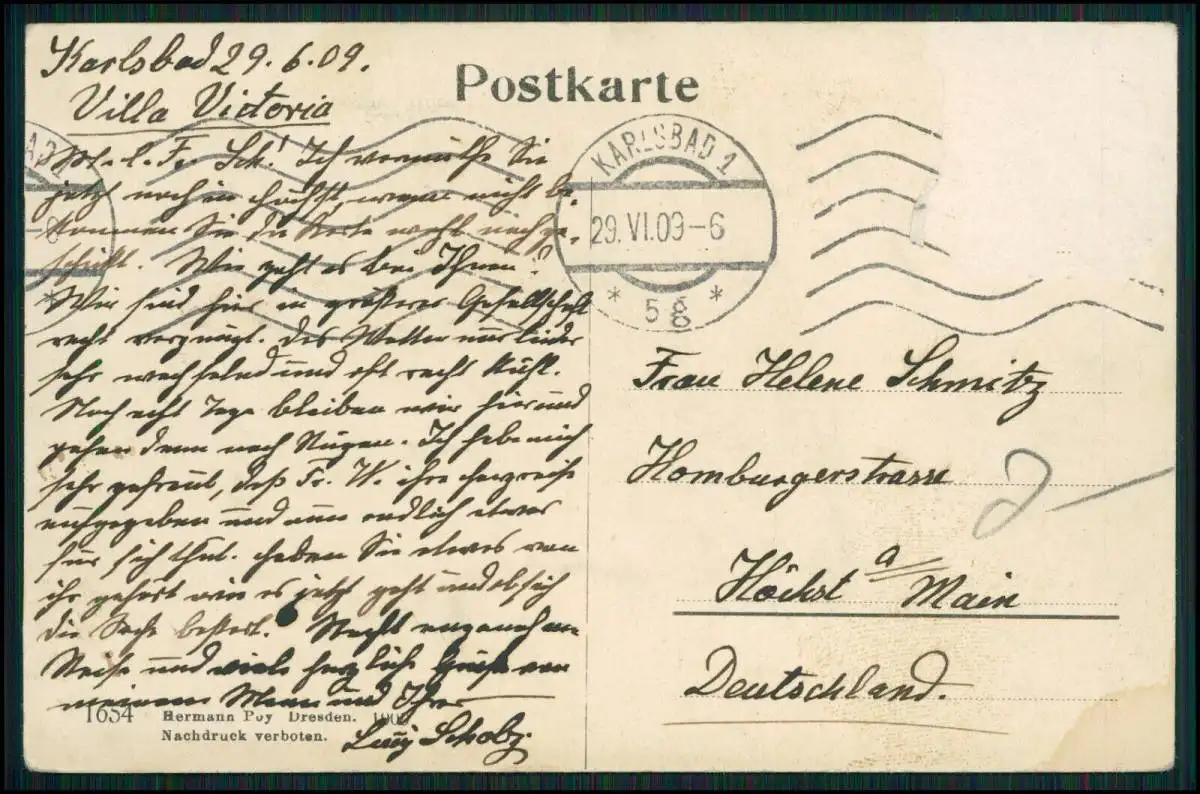 Karlsbad 29.6.09.
Villa Victoria
M. l. Fr. Sch! Ich vermuthe Sie
jetzt noch in Höchst, wenn nicht be-
kommen Sie die Karte wohl nachge-
schickt. Wie geht es bei Ihnen?
Wir sind hier in größerer Gesellschaft
recht vergnügt. Das Wetter nur leider
sehr wechselnd und oft recht kühl.
Noch acht Tage bleiben wir hier und
gehen dann nach Rügen. Ich habe mich
sehr gefreut, daß Fr. W. ihre
aufgegeben und nun endlich etwas
für sich thut. Haben Sie etwas von
ihr gehört wie es jetzt geht und ob sich
die Sache bessert. Recht angenehme
Reise und viele herzliche Grüße von
meinem Mann und Ihrer
1654 Hermann Poy Dresden.
Nachdruck verboten.
Postkarte
KARLSBAD 1
29.VI.09-6
* 5g *
Frau Helene Schmitz
Homburgerstrasse
Höchst a/ Main
Deutschland.